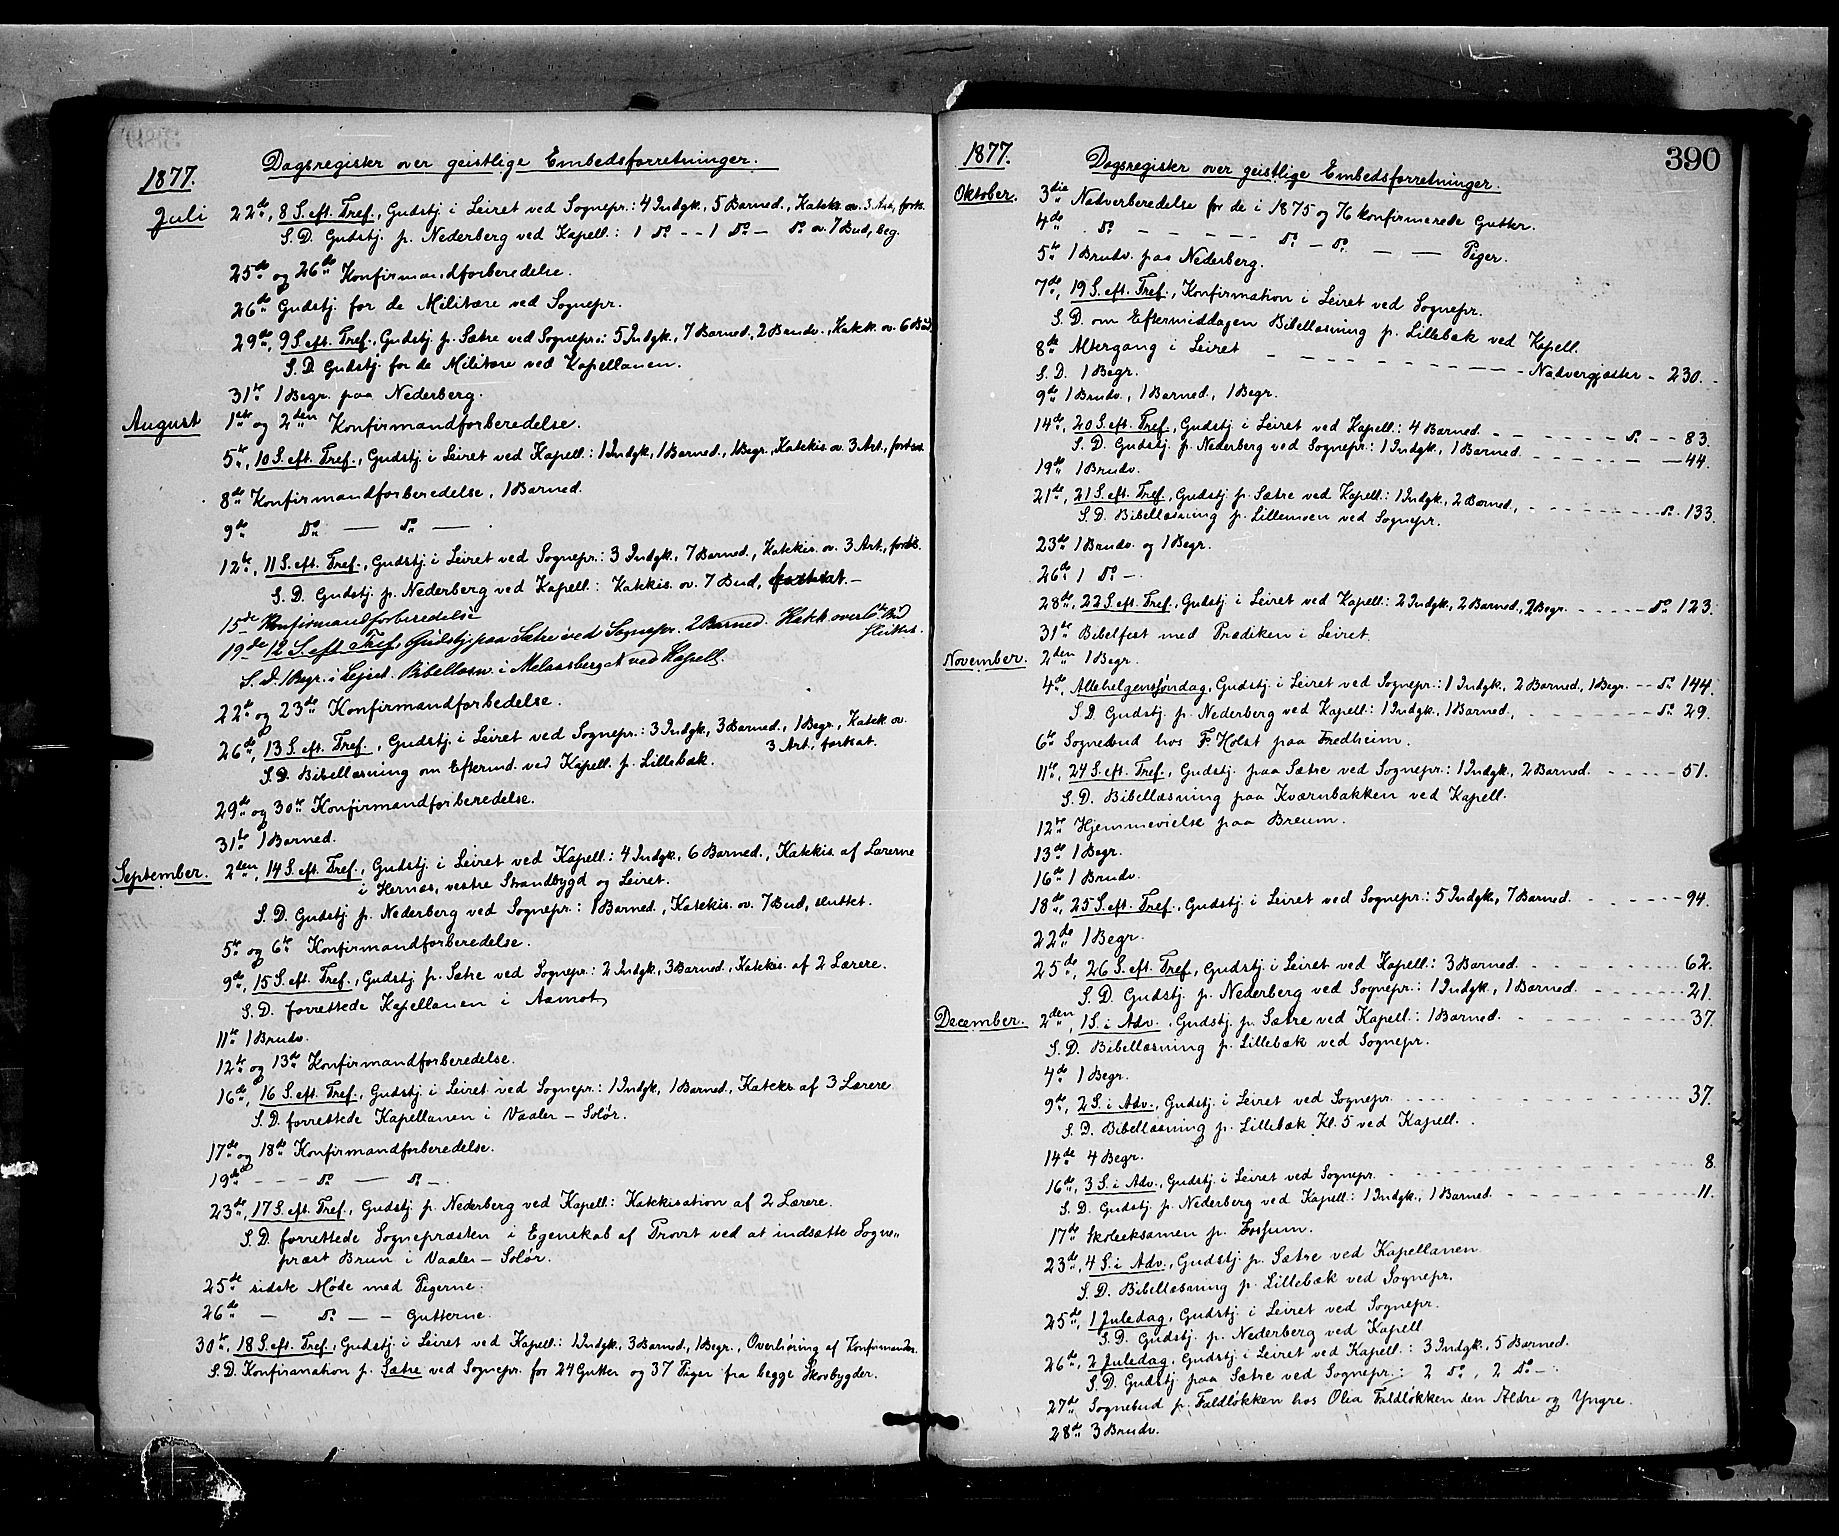 1877. Dagsregister over geistlige Embedsforretninger.
Juli 22de, 8 S. eft. Tref., Gudstj. i Leiret ved Sognepr.: 4 Indgk., 5 Barned., Katek. ov. 3 Art., forts.
S. D. Gudstj. p. Nederberg ved Kapell.: 1 Do. - - 1 Do. — Do. ov. 7 Bud, beg.
25de og 26de Konfirmandforberedelse.
26de Gudstj. for de Militære ved Sognepr.
29de, 9 S. eft. Tref., Gudstj. p. Sætre ved Sognepr.: 5 Indgk., 7 Barned., 2 Brudv., Katek. ov. 6 Bud
S. D. Gudstj. for de Militære ved Kapellanen.
31te 1 Begr. paa Nederberg.
August 1ste og 2den Konfirmandforberedelse.
5te, 10 S. eft. Tref., Gudstj. i Leiret ved Kapell.: 1 Indgk., 1 Barned., 1 Begr., Katekis. ov. 3 Art., fortsat.
8de Konfirmandforberedelse, 1 Barned.
9de Do. — Do. —
12te, 11 S. eft. Tref., Gudstj. i Leiret ved Sognepr.: 3 Indgk., 7 Barned., Katekis. ov. 3 Art., forts.
S. D. Gudstj. p. Nederberg ved Kapell.: Katekis. ov. 7 Bud, fortsat. —
15de Konfirmandforberedelse
19de 12 S. eft. Tref. Gudstj. paa Sætre ved Sognepr. 2 Barned. Katek. over 6te Bud
sluttet.
S. D. 1 Begr. i Lejret. Bibellæsn. i Melaasberg N ved Kapell.
22de og 23de Konfirmandforbedelse.
26de, 13 S. eft. Tref., Gudstj. i Leiret ved Sognepr.: 3 Indgk., 3 Barned., 1 Begr., Katek. ov.
3 Art., fortsat.
S. D. Bibellæsning om Efterm. ved Kapell. p. Lillebæk.
29de og 30te Konfirmandforberedelse.
31te 1 Barned.
September. 2den, 14 S. eft. Tref., Gudstj. i Leiret ved Kapell.: 4 Indgk., 6 Barned., Katekis. af Lærerne
i Hernæs, vestre Strandbygd og Leiret.
S. D. Gudstj. p. Nederberg ved Sognepr.: 1 Barned., Katekis. ov. 7 Bud, sluttet.
5te og 6te Konfirmandforberedelse.
9de, 15 S. eft. Tref., Gudstj. p. Sætre ved Sognepr.: 2 Indgk., 3 Barned., Katekis. af 2 Lærere.
S. D. forrettede Kapellanen i Aamot,
11te 1 Brudv.
12te og 13de Konfirmandforberedelse.
16de, 16 S. eft. Tref., Gudstj. i Leiret ved Sognepr.: 1 Indgk., 1 Barned., Katekis. af 3 Lærere.
S. D. forrettede Kapellanen i Vaaler – Solør.
17de og 18de Konfirmandforberedelse.
19de - - - Do. — Do. —.
23de, 17 S. eft. Tref., Gudstj. p. Nederberg ved Kapell.: Katekisation af 2 Lærere.
S. D. forrettede Sognepræsten i Egenskab af Provst ved at indsætte Sogne-
præst Brun i Vaaler – Solør.
25de sidste Møde med Pigerne.
26de — Do. — — Gutterne.
30te, 18 S. eft. Tref., Gudstj. i Leiret ved Kapell.: 1 Indgk., 3 Barned., 1 Begr., Overhøring af Konfirmander.
S. D. Konfirmation p. Sætre ved Sognepr. for 24 Gutter og 37 Piger fra begge Skovbygder.
390
1877. Dagsregister over geistlige Embedsforretninger.
Oktober. 3die Nadverberedelse for de i 1875 og 76 konfirmerede Gutter.
4de Do. - - - - - - Do. — Do. — — Piger.
5te 1 Brudv. paa Nederberg.
7de, 19 S. eft. Tref., Konfirmation i Leiret ved Sognepr.
S. D. om Eftermiddagen Bibellæsning p. Lillebæk ved Kapell.
8de Altergang i Leiret - - - - - - - - - Nadvergjæster - 230.
S. D. 1 Begr.
9de 1 Brudv., 1 Barned., 1 Begr.
14de, 20 S. eft. Tref., Gudstj. i Leiret ved Kapell.: 4 Barned. - - - - Do. - - 83.
S. D. Gudstj. p. Nederberg ved Sognepr.: 1 Indgk., 1 Barned. - - - - — 44.
19de 1 Brudv.
21de, 21 S. eft. Tref., Gudstj. p. Sætre ved Kapell.: 1 Indgk., 2 Barned., - - - - Do. 133.
S. D. Bibellæsning p. Lillemoen ved Sognepr.
23de 1 Brudv. og 1 Begr.
26de 1 Do. —.
28de, 22 S. eft. Tref., Gudstj. i Leiret ved Kapell.: 2 Indgk., 2 Barned., 2 Begr. - - - - Do. 123.
31te Bibelfest med Prædiken i Leiret.
November. 2den 1 Begr.
4de, Allehelgenssøndag, Gudstj. i Leiret ved Sognepr.: 1 Indgk., 2 Barned., 1 Begr. - - Do. 144.
S. D. Gudstj. p. Nederberg ved Kapell.: 1 Indgk., 1 Barned., - - - - Do. 29.
6te Sognebud hos F Holst paa Fredheim.
11te, 24 S. eft. Tref., Gudstj. paa Sætre ved Sognepr.: 1 Indgk., 2 Barned. - - - - 51.
S. D. Bibellæsning paa Kværnbakken ved Kapell.
12te Hjemmevielse paa Breum.
13de 1 Begr.
16de 1 Brudv.
18de, 25 S. eft. Tref., Gudstj. i Leiret ved Sognepr.: 5 Indgk., 7 Barned. - - - - 94.
22de 1 Begr.
25de, 26 S. eft. Tref., Gudstj. i Leiret ved Kapell.: 3 Barned. - - - - 62.
S. D. Gudstj. p. Nederberg ved Sognepr.: 1 Indgk., 1 Barned. - - - - 21.
December. 2den, 1 S. i Adv., Gudstj. p. Sætre ved Kapell.: 1 Barned. - - - - 37.
S. D. Bibellæsning p. Lillebæk ved Sognepr.
4de 1 Begr.
9de, 2 S. i Adv., Gudstj. i Leiret ved Sognepr. - - - - 37.
S. D. Bibellæsning p. Lillebæk Kl. 5 ved Kapell.
14de 4 Begr.
16de, 3 S. i Adv., Gudstj. i Leiret ved Sognepr. - - - - 8.
S. D. Gudstj. p. Nederberg ved Kapell.: 1 Indgk., 1 Barned. - - - - 11.
17de Skoleeksamen p. Fossum.
23de, 4 S. i Adv., Gudstj. p. Sætre ved Kapellanen.
S. D. Bibellæsning p. Lillebæk ved Sognepr.
25de, 1 Juledag, Gudstj. i Leiret ved Sognepr.
S. D. Gudstj. p. Nederberg ved Kapell
26de, 2 Juledag, Gudstj. i Leiret ved Kapell.: 3 Indgk., 5 Barned.
S. D. Gudstj. paa Sætre ved Sognepr.: 2 Do., 2 Do. —.
27de Sognebud p. Faldløkken hos Olea Faldløkken den Ældre og Yngre.
28de 3 Brudv.